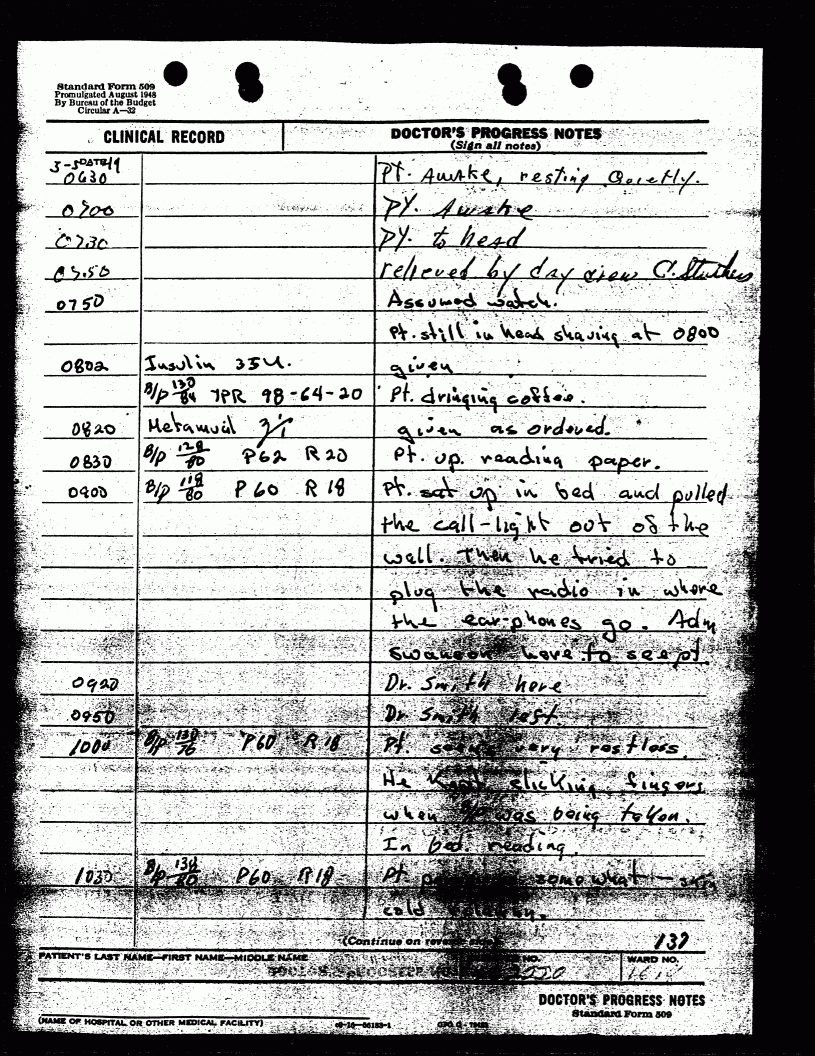 Standard Form 509
Promulgated August 1948
By Bureau of the Budget
Circular A—32
CLINICAL RECORD
DOCTOR'S PROGRESS NOTES
(Sign all notes)
DATE
0630 Pt. Awake, resting Quietly.
0700 PY. Awake
0730 PY. to head
relieved by day crew C.
0750 Assumed watch.
Pt. still in head shaving at 0800
0802 Insulin 35U. given
B/P 130/84 TPR 98-64-20 Pt. dringing coffee.
0820 Metamucil given as ordered.
0830 B/P 128/80 P62 R20 Pt. up. reading paper.
0900 B/P 118/80 P60 R18 Pt. sat up in bed and pulled
the call-light out of the
wall. Then he tried to
plug the radio in where
the ear-phones go. Adm
Swanson here to see pt.
0920 Dr. Smith here
0950 Dr Smith left.
1000 B/P 130/76 P60 R18 Pt. seems very restless.
He Kept clicking fingers
when B/P was being taken.
In bed. reading.
1030 B/P 138/80 P60 R18 Pt somewhat
cold
(Continue on reverse side)
137
PATIENT'S LAST NAME—FIRST NAME—MIDDLE NAME
NO.
WARD NO.
DOCTOR'S PROGRESS NOTES
Standard Form 509
(NAME OF HOSPITAL OR OTHER MEDICAL FACILITY)